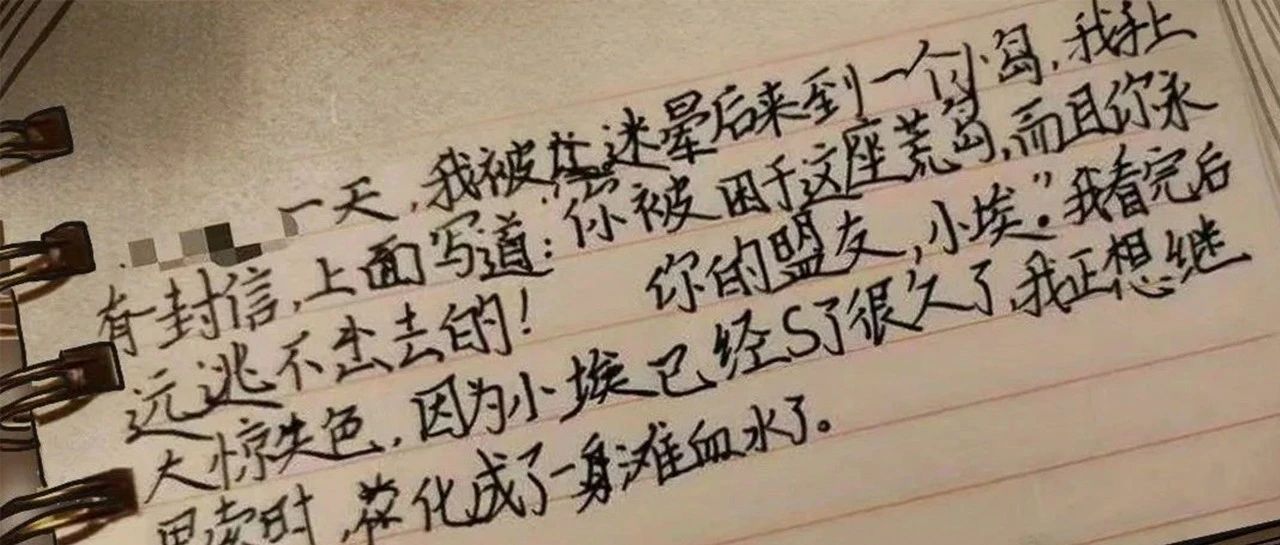 一天,我被迷晕后来到一个小岛,我手上
有封信,上面写道:“你被困于这座荒岛,而且你永
远逃不出去的! 你的盟友,小埃。”我看完后
大惊失色,因为小埃已经S了很久了,我正想继
思索时,花化成了一身滩血水了。